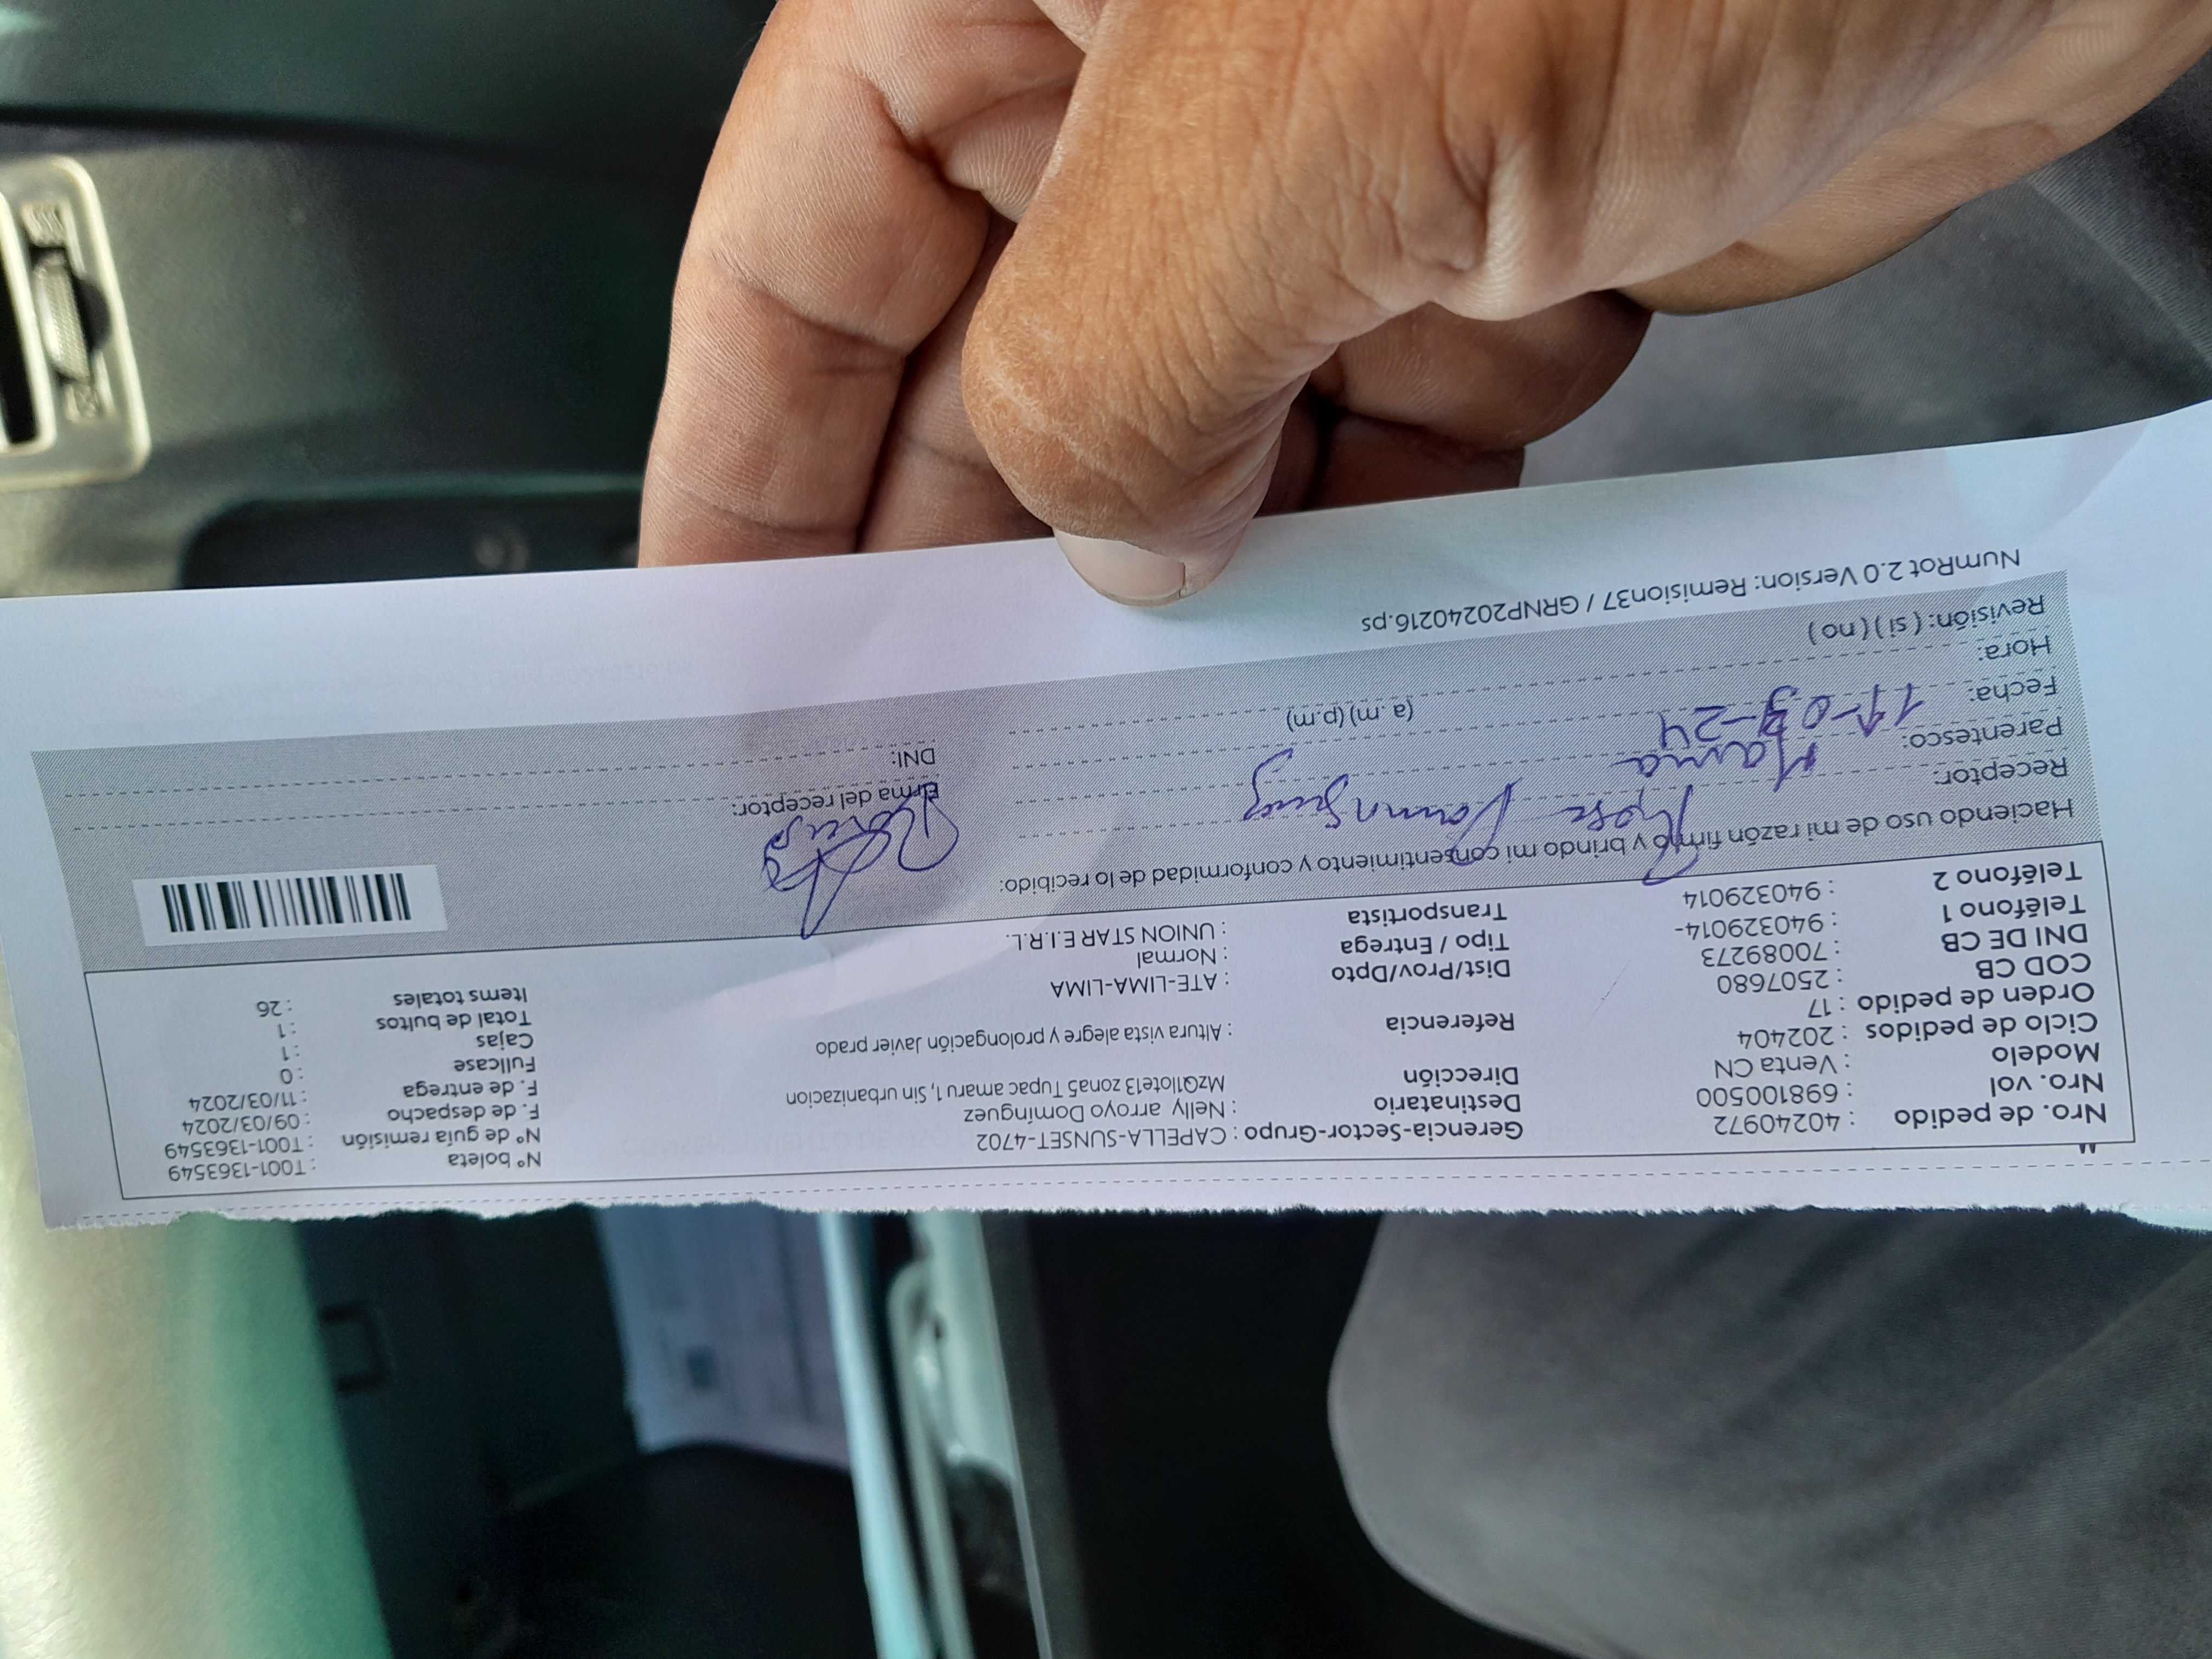 Nro. de pedido : 40240972
Nro. vol : 698100500
Modelo : Venta CN
Ciclo de pedidos : 202404
Orden de pedido : 17
COD CB : 2507680
DNI DE CB : 70089273
Teléfono 1 : 940329014-
Teléfono 2 : 940329014
Gerencia-Sector-Grupo : CAPELLA-SUNSET-4702
Destinatario : Nelly arroyo Domínguez
Dirección MzQ1lote13 zona5 Tupac amaru 1, Sin urbanizacion
Referencia : Altura vista alegre y prolongación Javier prado
Dist/Prov/Dpto : ATE-LIMA-LIMA
Tipo / Entrega : Normal
Transportista : UNION STAR E.I.R.L.
Nº boleta : T001-1363549
Nº de guía remisión : T001-1363549
F. de despacho : 09/03/2024
F. de entrega : 11/03/2024
Fullcase : 0
Cajas : 1
Total de bultos : 1
Items totales : 26
Haciendo uso de mi razón firmo y brindo mi consentimiento y conformidad de lo recibido:
Receptor:
Parentesco: Mama
Fecha: 11-03-24
Hora: (a. m) (p.m)
Revisión: ( si ) ( no )
Firma del receptor:
DNI:
NumRot 2.0 Version: Remision37 / GRNP20240216.ps